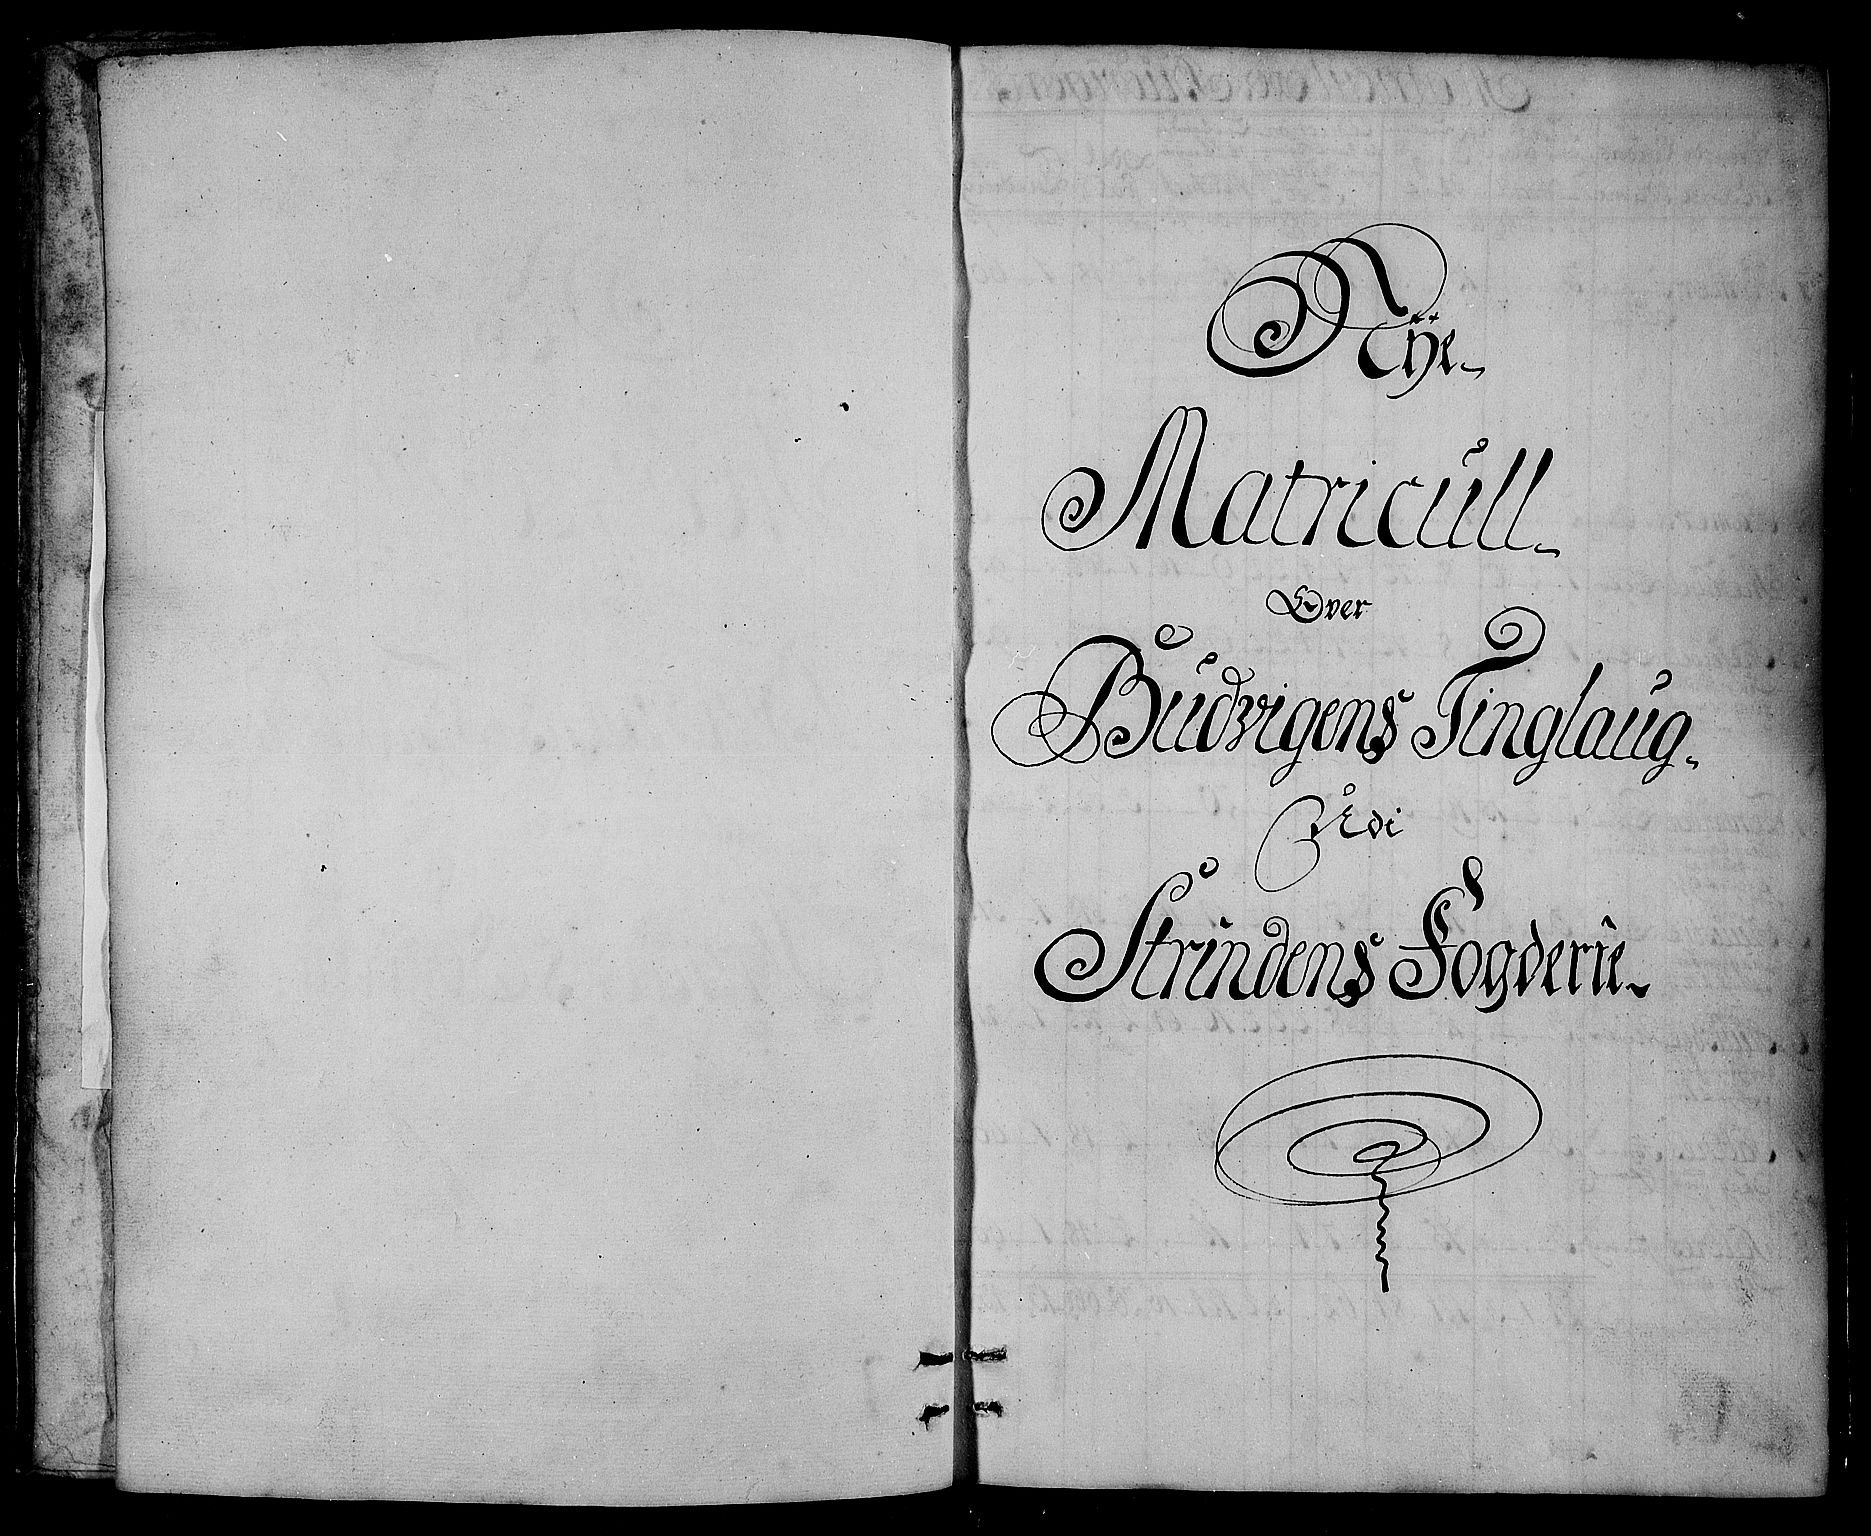 Nÿe
Matricull
Over
Budvigens Tinglaug
Udi
Strindens Fogderie